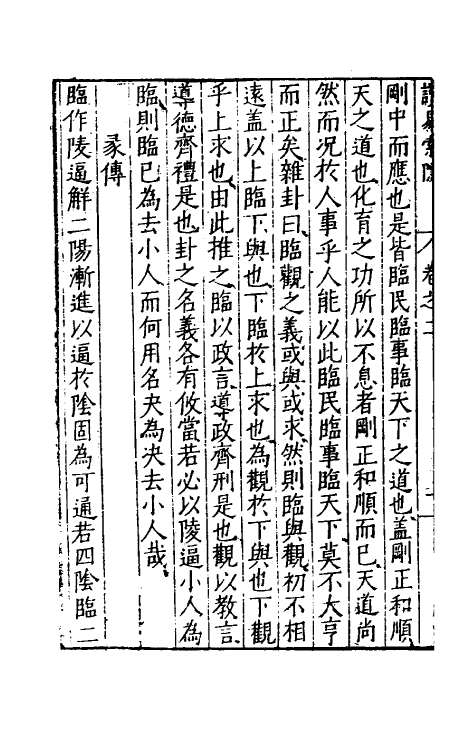 卷之二
剛中而應也是皆臨民臨事臨天下之道也蓋剛正和順
天之道也化育之功所以不息者剛正和順而已天道尚
然而况於人事乎人能以此臨民臨事臨天下莫不大亨
而正矣雜卦曰臨觀之義或與或求然則臨與觀初不相
遠盖以上臨下與也下臨於上求也為觀於下與也下觀
乎上求也由此推之臨以政言導政齊刑是也觀以教言
導德齊禮是也卦之名義各有攸當若必以陵逼小人為
臨則臨已為去小人而何用名夬為决去小人哉
彖傳
臨作陵逼觧二陽漸進以逼於陰固為可通若四陰臨二